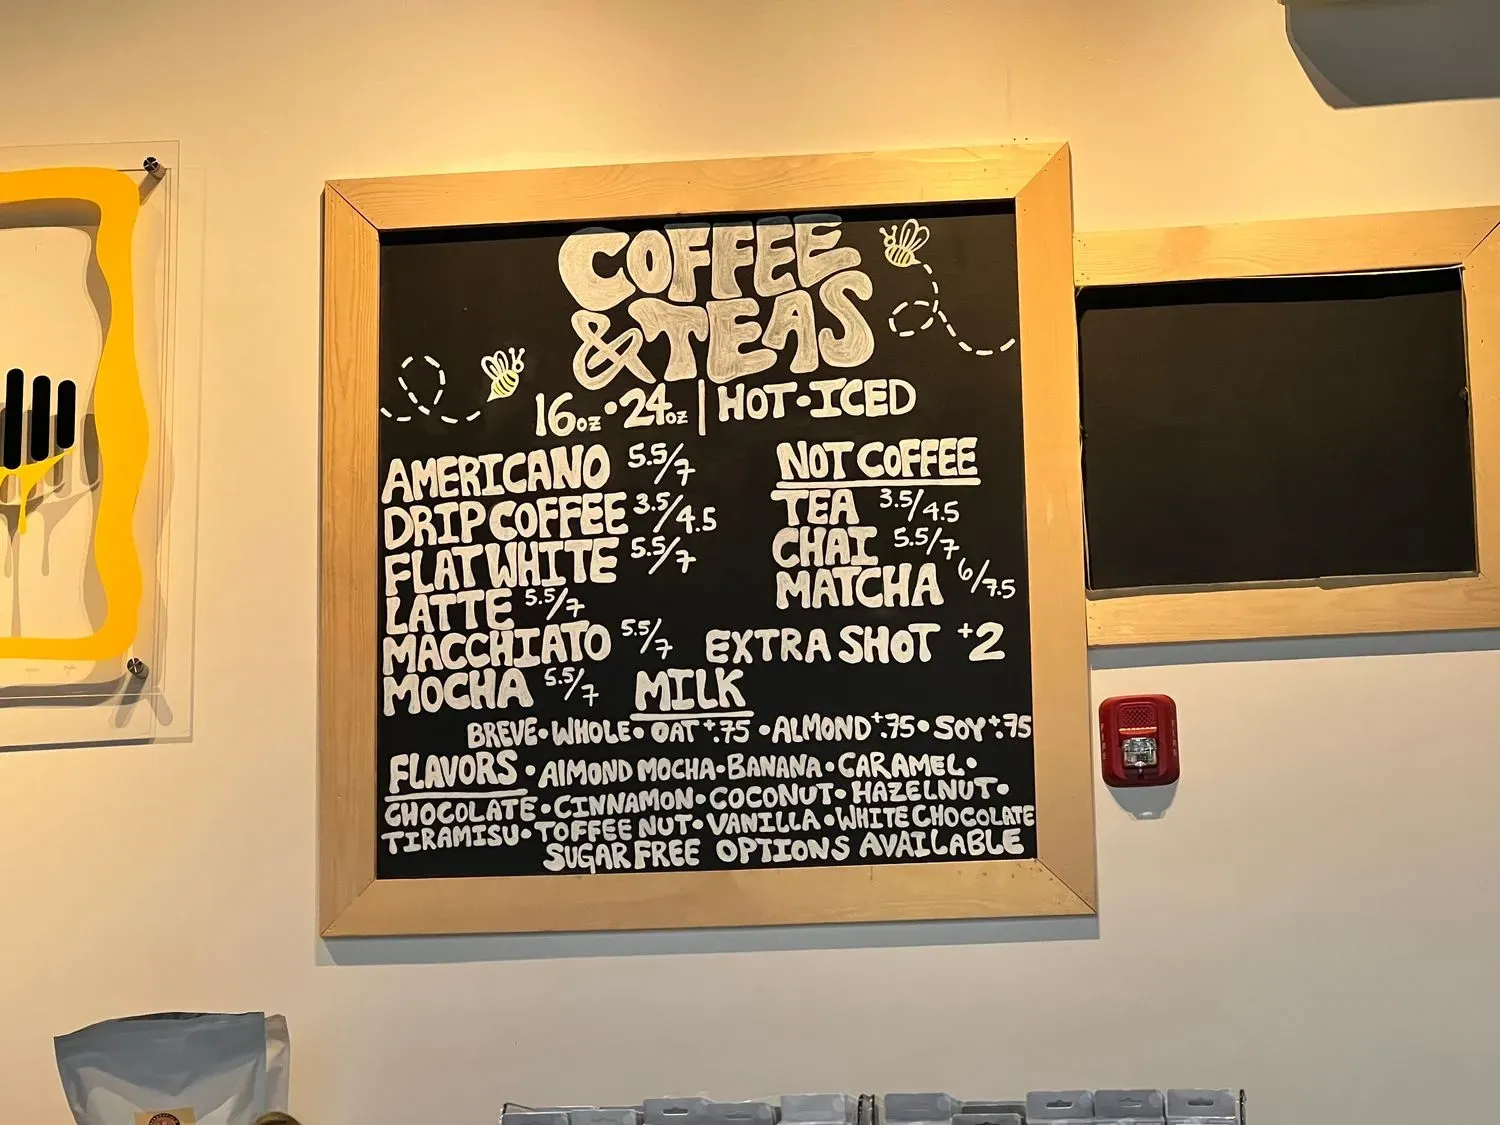 COFFEE
& TEAS
16oz • 24oz | HOT • ICED
AMERICANO 5.5/7
DRIP COFFEE 3.5/4.5
FLAT WHITE 5.5/7
LATTE 5.5/7
MACCHIATO 5.5/7
MOCHA 5.5/7
NOT COFFEE
TEA 3.5/4.5
CHAI 5.5/7
MATCHA 6/7.5
EXTRA SHOT +2
MILK
BREVE • WHOLE • OAT +.75 • ALMOND +.75 • SOY +.75
FLAVORS • AlMOND MOCHA • BANANA • CARAMEL •
CHOCOLATE • CINNAMON • COCONUT • HAZELNUT •
TIRAMISU • TOFFEE NUT • VANILLA • WHITE CHOCOLATE
SUGAR FREE OPTIONS AVAILABLE